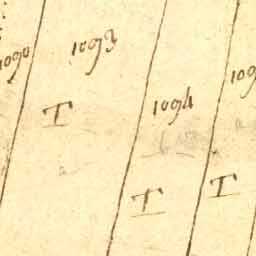 1090
1093
1094
109
T
T
T